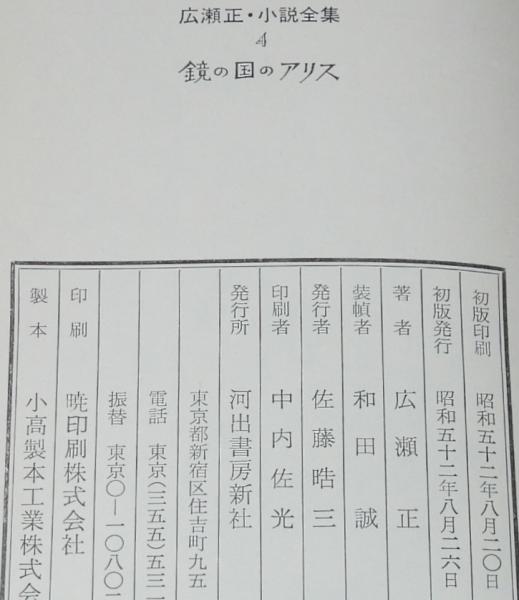 広瀬正・小説全集
4
鏡の国のアリス
初版印刷 昭和五十二年八月二〇日
初版発行 昭和五十二年八月二六日
著者 広瀬正
装幀者 和田誠
発行者 佐藤晧三
印刷者 中内佐光
発行所 河出書房新社
東京都新宿区住吉町九五
電話 東京(三五五)五三一
振替 東京〇―一〇八〇二
印刷 暁印刷株式会社
製本 小高製本工業株式会